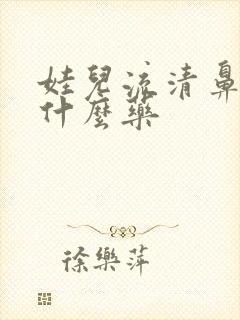 娃兒流清鼻
什麼藥
徐樂萍